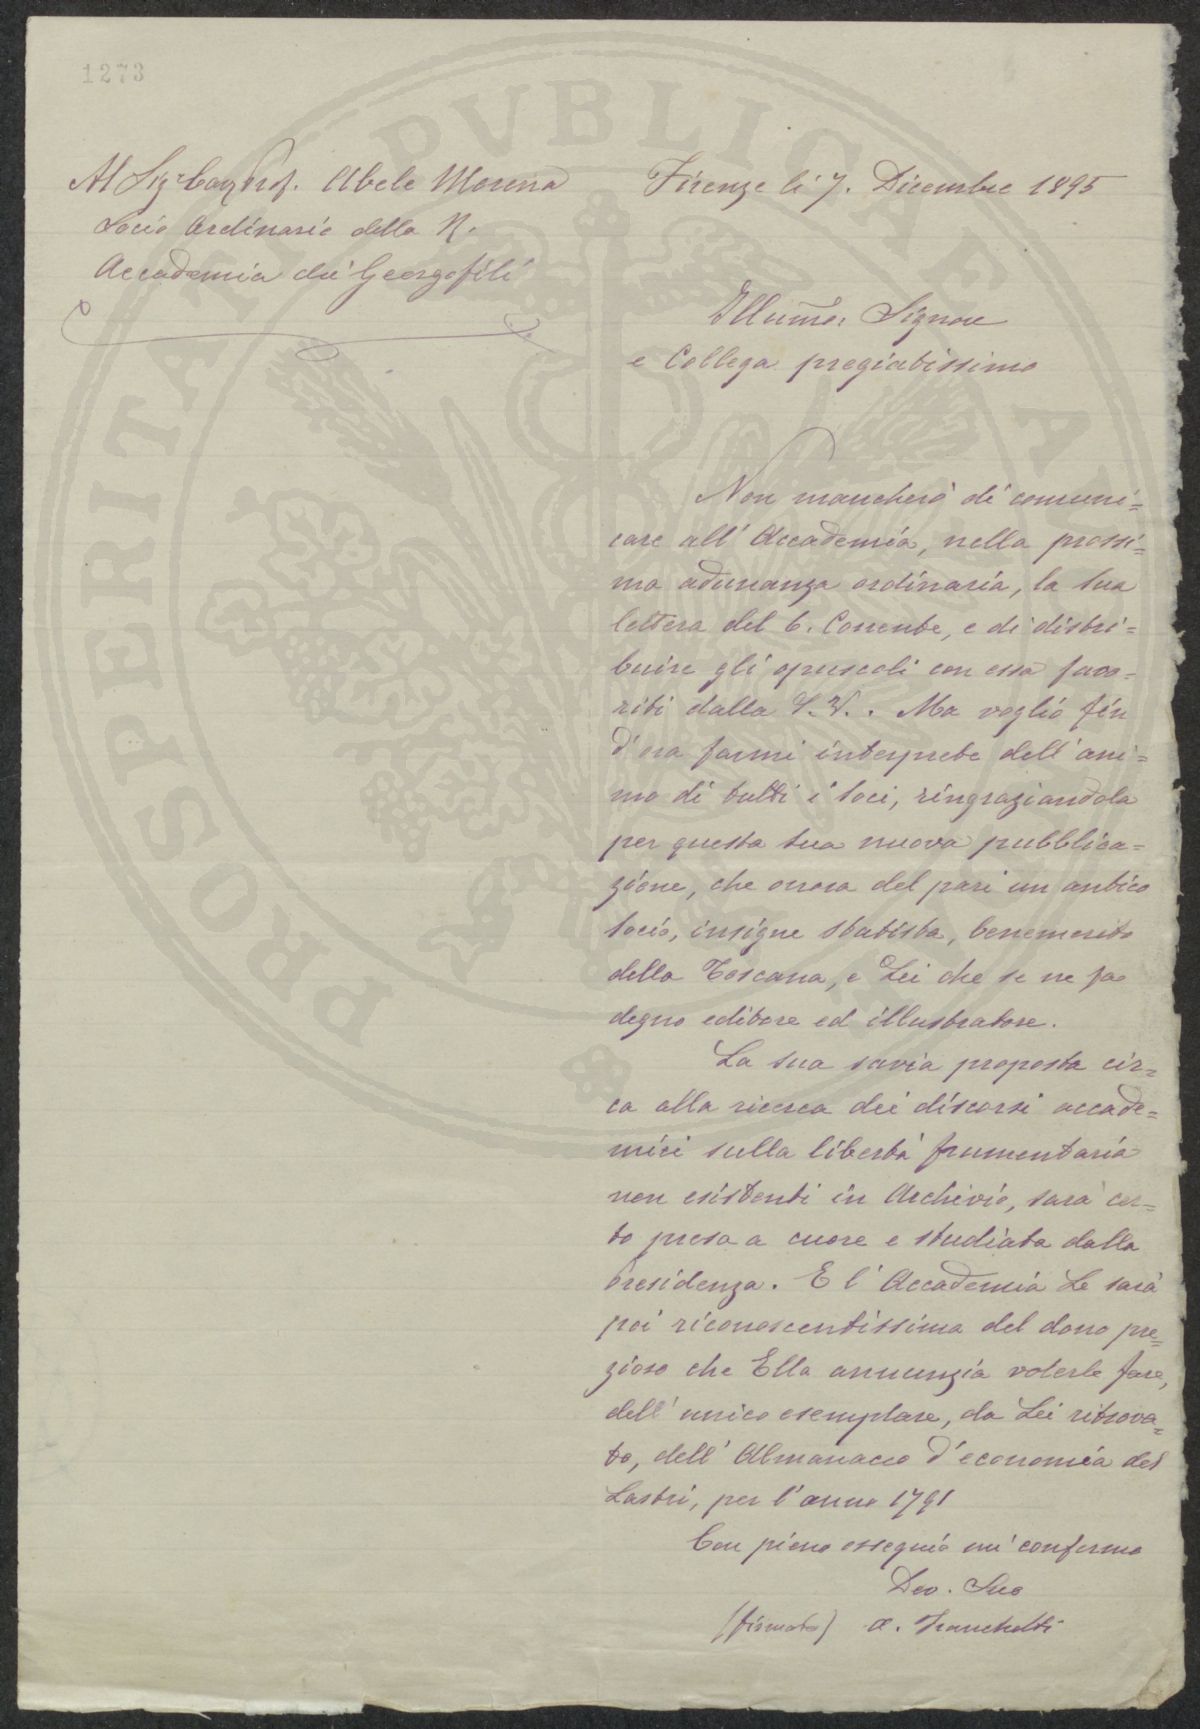 1273
Al Sigr Cav. Prof. Abele Morena
Socio Ordinario della R.
Accademia dei Georgofili
Firenze li 7. Dicembre 1895
Illumo: Signore
e Collega pregiatissimo
Non mancherò di comuni=
care all'Accademia, nella prossi=
ma adunanza ordinaria, la Sua
lettera del 6. Corrente, e di distri=
buire gli opuscoli con essa favo=
riti dalla S.V.. Ma voglio fin
d'ora farmi interprete dell'ani=
mo di tutti i Soci, ringraziandola
per questa Sua nuova pubblica=
zione, che onora del pari un antico
Socio, insigne statista, benemerito
della Toscana, e Lei che se ne fa
degno editore ed illustratore.
La Sua savia proposta cir=
ca alla ricerca dei discorsi accade=
mici sulla libertà frumentaria
non esistenti in Archivio, sarà cer=
to presa a cuore e studiata dalla
Presidenza. E l'Accademia Le sarà
poi riconoscentissima del dono pre=
zioso che Ella annunzia volerle fare,
dell'unico esemplare, da Lei ritrova=
to, dell'Almanacco d'economia del
Lastri, per l'anno 1791
Con pieno ossequio mi confermo
Dev. Suo
(firmato) A. Franchetti
PROSPERITATI PVBLICAE